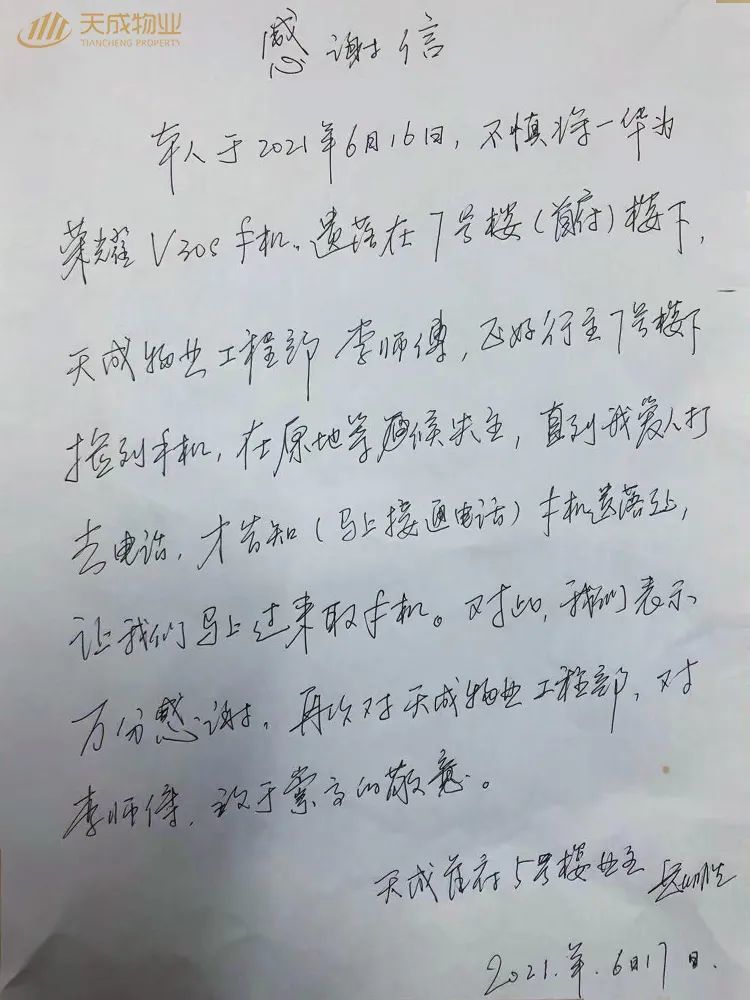 天成物业
TIANCHENG PROPERTY
感谢信
本人于2021年6月16日,不慎将一华为
荣耀V30S手机。遗落在7号楼(首府)楼下,
天成物业工程部李师傅,正好行至7号楼下
捡到手机,在原地等候失主,直到我爱人打
去电话,才告知(马上接通电话)手机遗落处,
让我们马上过来取手机。对此,我们表示
万分感谢,再次对天成物业工程部,对
李师傅,致于崇高的敬意。
天成首府5号楼业主
2021.年.6月17日.